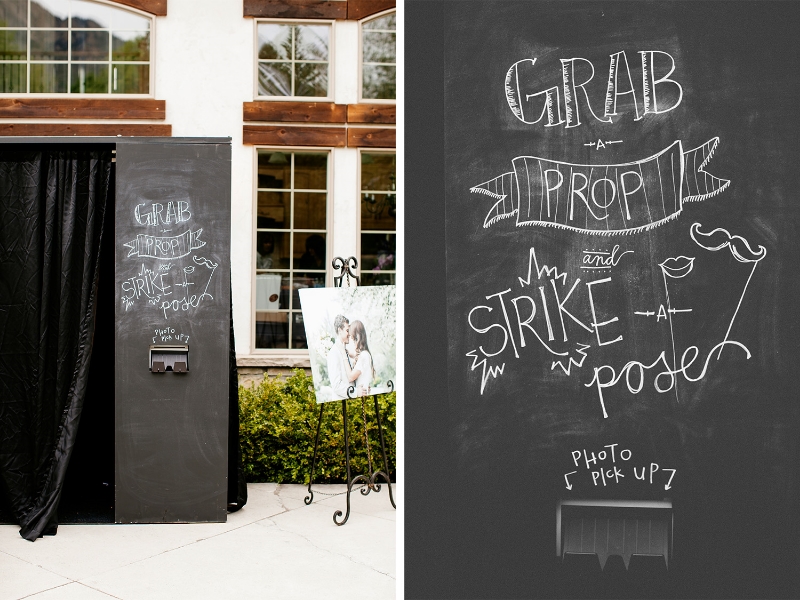 GRAB
A
PROP
and
STRIKE
A
pose
PHOTO
PICK UP
GRAB
A
PROP
and
STRIKE
A
pose
PHOTO
PICK UP